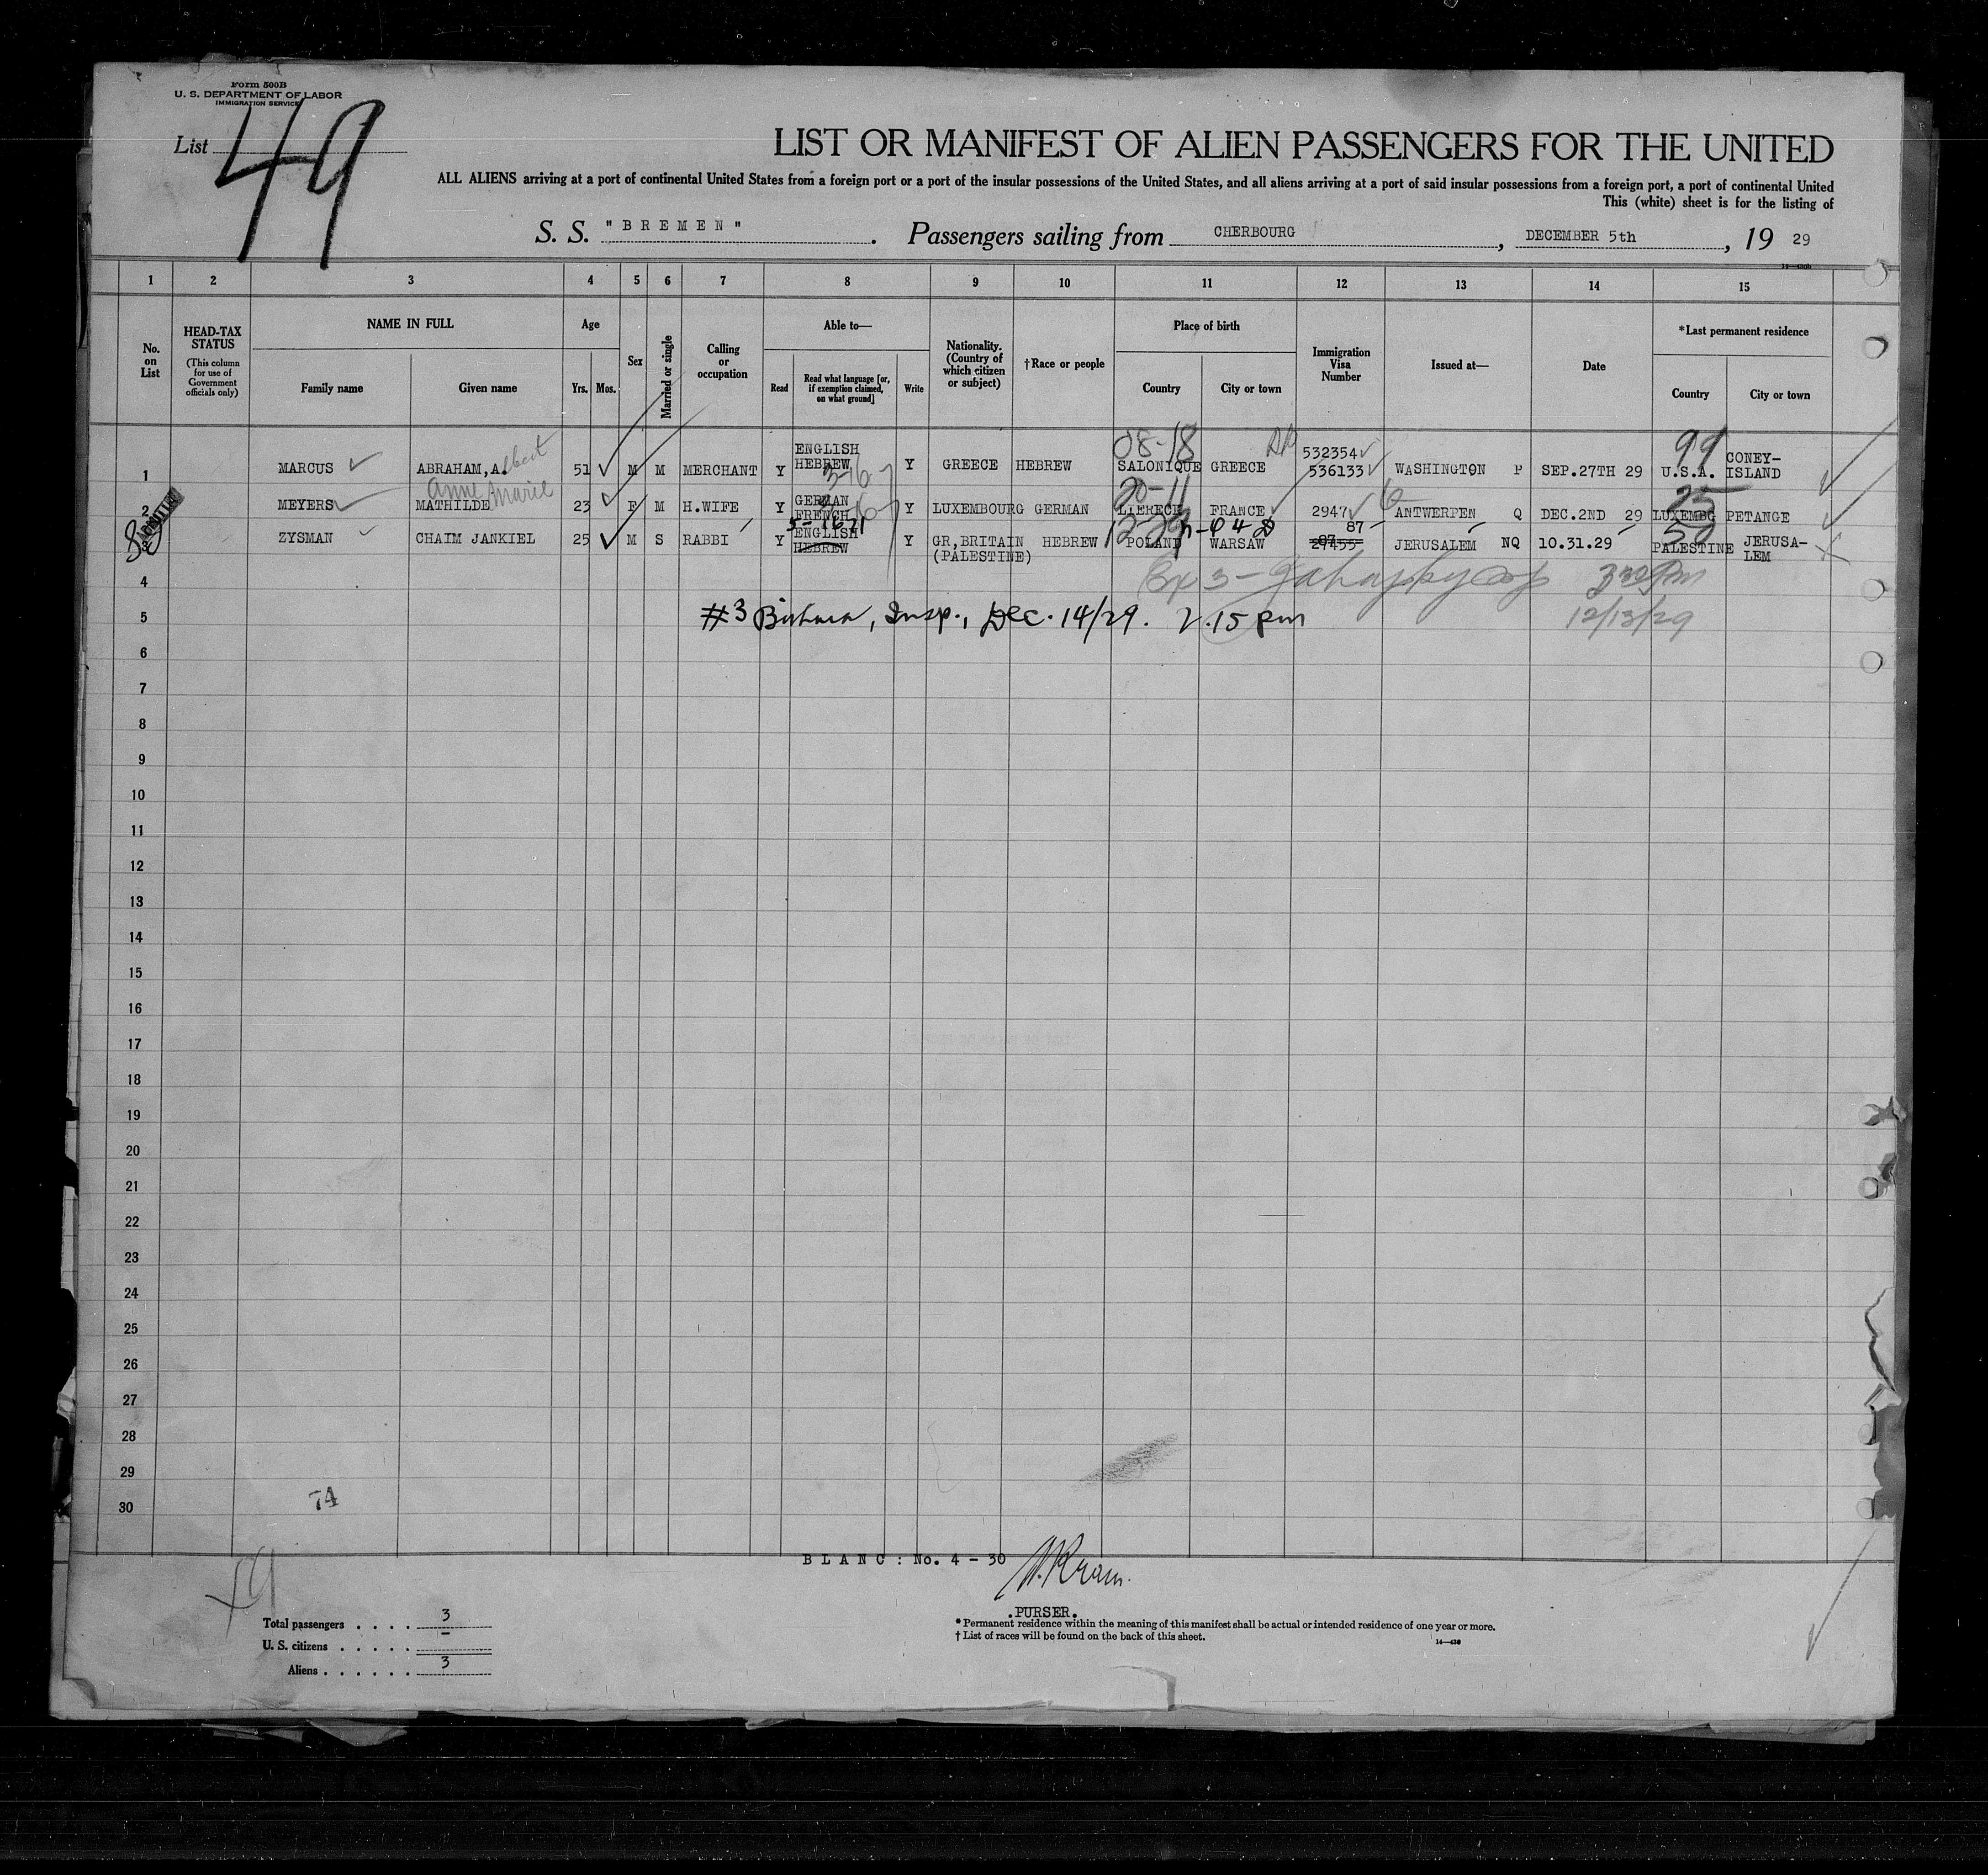 Form 500B
U. S. DEPARTMENT OF LABOR
IMMIGRATION SERVICE
List 49
LIST OR MANIFEST OF ALIEN PASSENGERS FOR THE UNITED
ALL ALIENS arriving at a port of continental United States from a foreign port or a port of the insular possessions of the United States, and all aliens arriving at a port of said insular possessions from a foreign port, a port of continental United
This (white) sheet is for the listing of
S. S. "BREMEN". Passengers sailing from CHERBOURG, DECEMBER 5th, 19 29
1 2 3 4 5 6 7 8 9 10 11 12 13 14 15
No. on List
HEAD-TAX STATUS (This column for use of Government officials only)
NAME IN FULL Family name Given name
Age Yrs. Mos.
Sex
Married or single
Calling or occupation
Able to— Read Read what language [or, if exemption claimed, on what ground] Write
Nationality. (Country of which citizen or subject)
†Race or people
Place of birth Country City or town
Immigration Visa Number
Issued at—
Date
*Last permanent residence Country City or town
1 MARCUS ABRAHAM,A. 51 M M MERCHANT Y ENGLISH HEBREW Y GREECE HEBREW 08-18 SALONIQUE GREECE 532354 536133 WASHINGTON P SEP.27TH 29 99 U.S.A. CONEY-ISLAND
Anne Marie
2 MEYERS MATHILDE 23 F M H.WIFE Y GERMAN FRENCH Y LUXEMBOURG GERMAN 20-11 FRANCE 2947 ANTWERPEN Q DEC.2ND 29 25 LUXEMBG PETANGE
ADMITTED
3 ZYSMAN CHAIM JANKIEL 25 M S RABBI Y ENGLISH HEBREW Y GR,BRITAIN (PALESTINE) HEBREW POLAND WARSAW 87 JERUSALEM NQ 10.31.29 50 PALESTINE JERUSALEM
4
5 #3 Insp., Dec. 14/29. 2.15 pm 12/13/29
6
7
8
9
10
11
12
13
14
15
16
17
18
19
20
21
22
23
24
25
26
27
28
29
30
74
BLANC: No. 4 - 30
.PURSER.
Total passengers . . . . 3
U. S. citizens . . . . . –
Aliens . . . . . . 3
* Permanent residence within the meaning of this manifest shall be actual or intended residence of one year or more.
† List of races will be found on the back of this sheet.
14—430